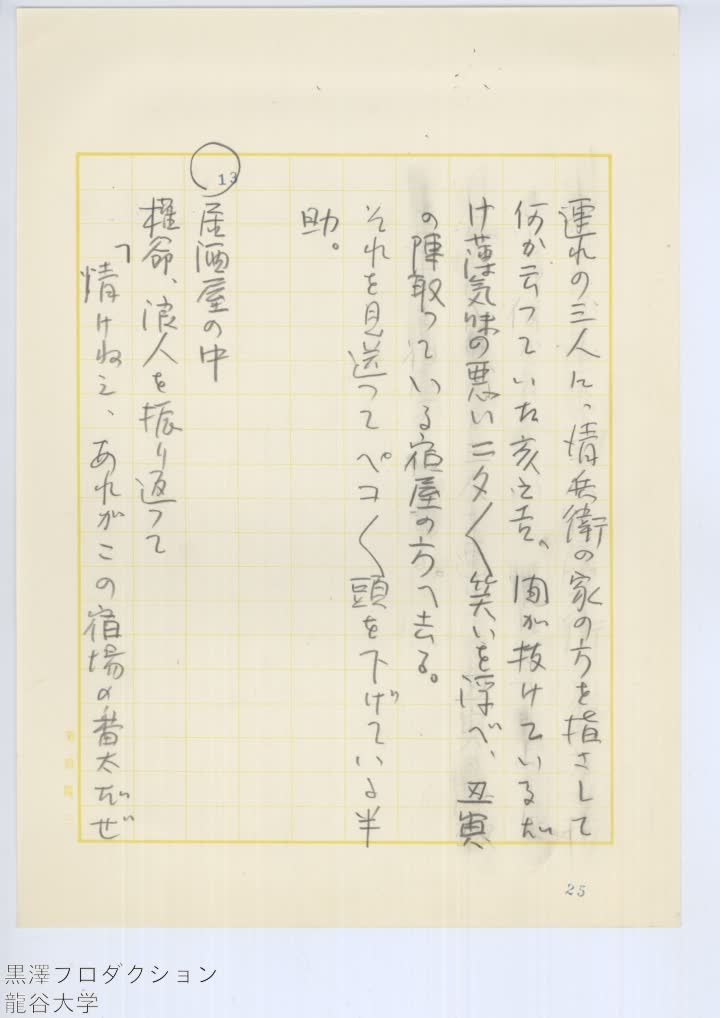 連れの三人に、清兵衛の家の方を指さして
何か云っていた亥之吉、間が抜けているだ
け薄気味の悪いニタ〳〵笑いを浮べ、丑寅
の陣取っている宿屋の方へ去る。
それを見送ってペコ〳〵頭を下げている半
助。
13
居酒屋の中
権爺、浪人を振り返って
「情けねえ、あれがこの宿場の番太だぜ
25
黒澤プロダクション
龍谷大学